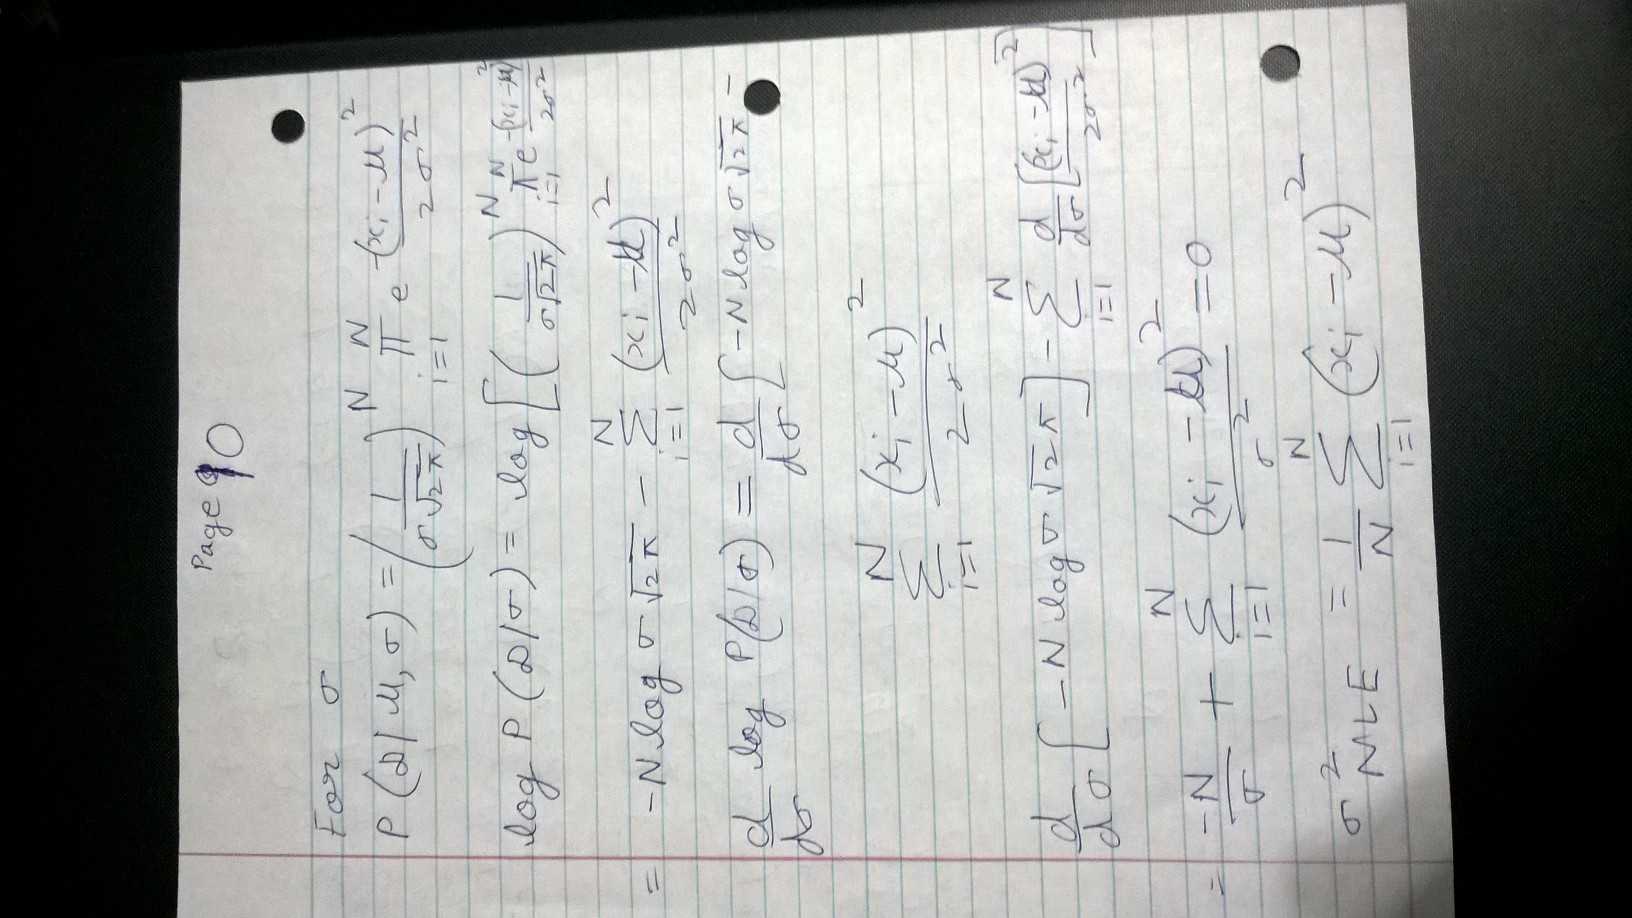 Page 10
For σ
P(D|μ,σ) = (1/(σ√2π))^N ∏_{i=1}^N e^{-(xi-μ)²/2σ²}
log P(D|σ) = log[(1/(σ√2π))^N ∏_{i=1}^N e^{-(xi-μ)²/2σ²}
= -N log σ√2π - ∑_{i=1}^N (xi-μ)²/2σ²
d/dσ log P(D|σ) = d/dσ [-N log σ√2π -
∑_{i=1}^N (xi-μ)²/2σ²
d/dσ [-N log σ√2π] - ∑_{i=1}^N d/dσ [(xi-μ)²/2σ²]
= -N/σ + ∑_{i=1}^N (xi-μ)²/σ² = 0
σ²MLE = 1/N ∑_{i=1}^N (xi-μ)²